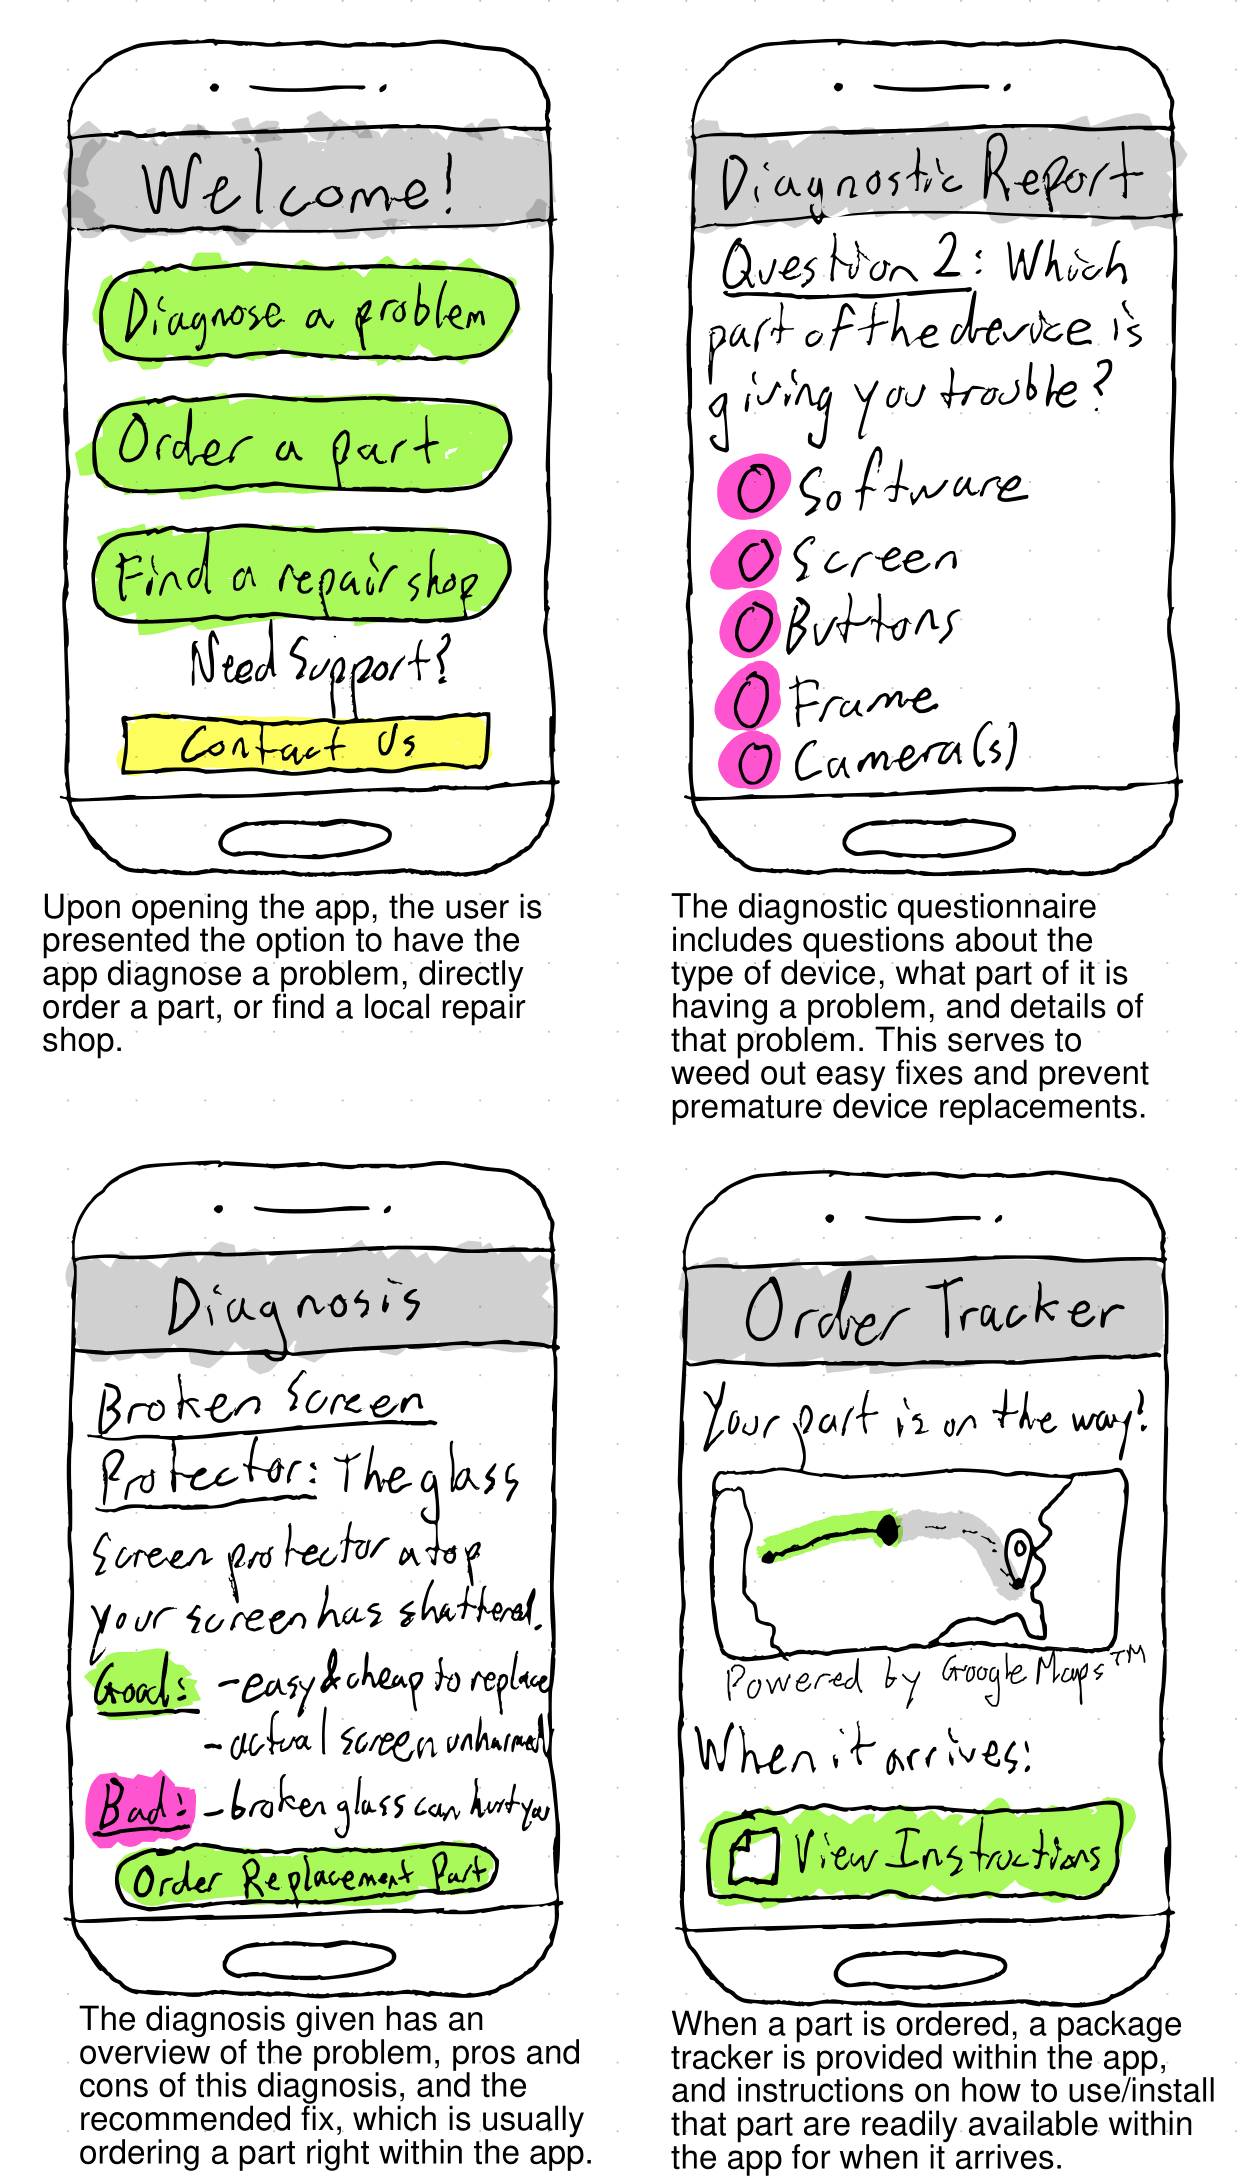 Welcome!
Diagnose a problem
Order a part
Find a repair shop
Need Support?
Contact Us
Upon opening the app, the user is
presented the option to have the
app diagnose a problem, directly
order a part, or find a local repair
shop.
Diagnostic Report
Question 2: Which
part of the device is
giving you trouble?
Software
Screen
Buttons
Frame
Camera(s)
The diagnostic questionnaire
includes questions about the
type of device, what part of it is
having a problem, and details of
that problem. This serves to
weed out easy fixes and prevent
premature device replacements.
Diagnosis
Broken Screen
Protector: The glass
screen protector atop
your screen has shattered.
Good: -easy & cheap to replace
-actual screen unharmed
Bad: -broken glass can hurt you
Order Replacement Part
The diagnosis given has an
overview of the problem, pros and
cons of this diagnosis, and the
recommended fix, which is usually
ordering a part right within the app.
Order Tracker
Your part is on the way!
Powered by Google Maps™
When it arrives:
View Instructions
When a part is ordered, a package
tracker is provided within the app,
and instructions on how to use/install
that part are readily available within
the app for when it arrives.